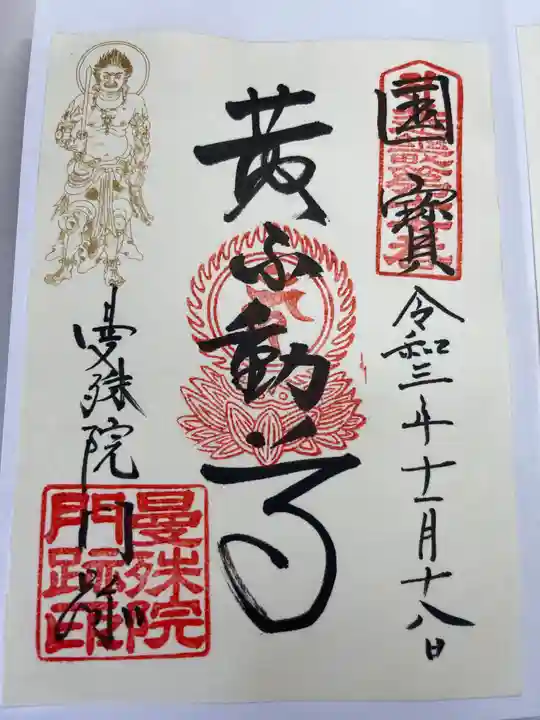 國寳
令和三年十一月十八日
黄不動尊
曼殊院門跡
曼殊院
門跡印